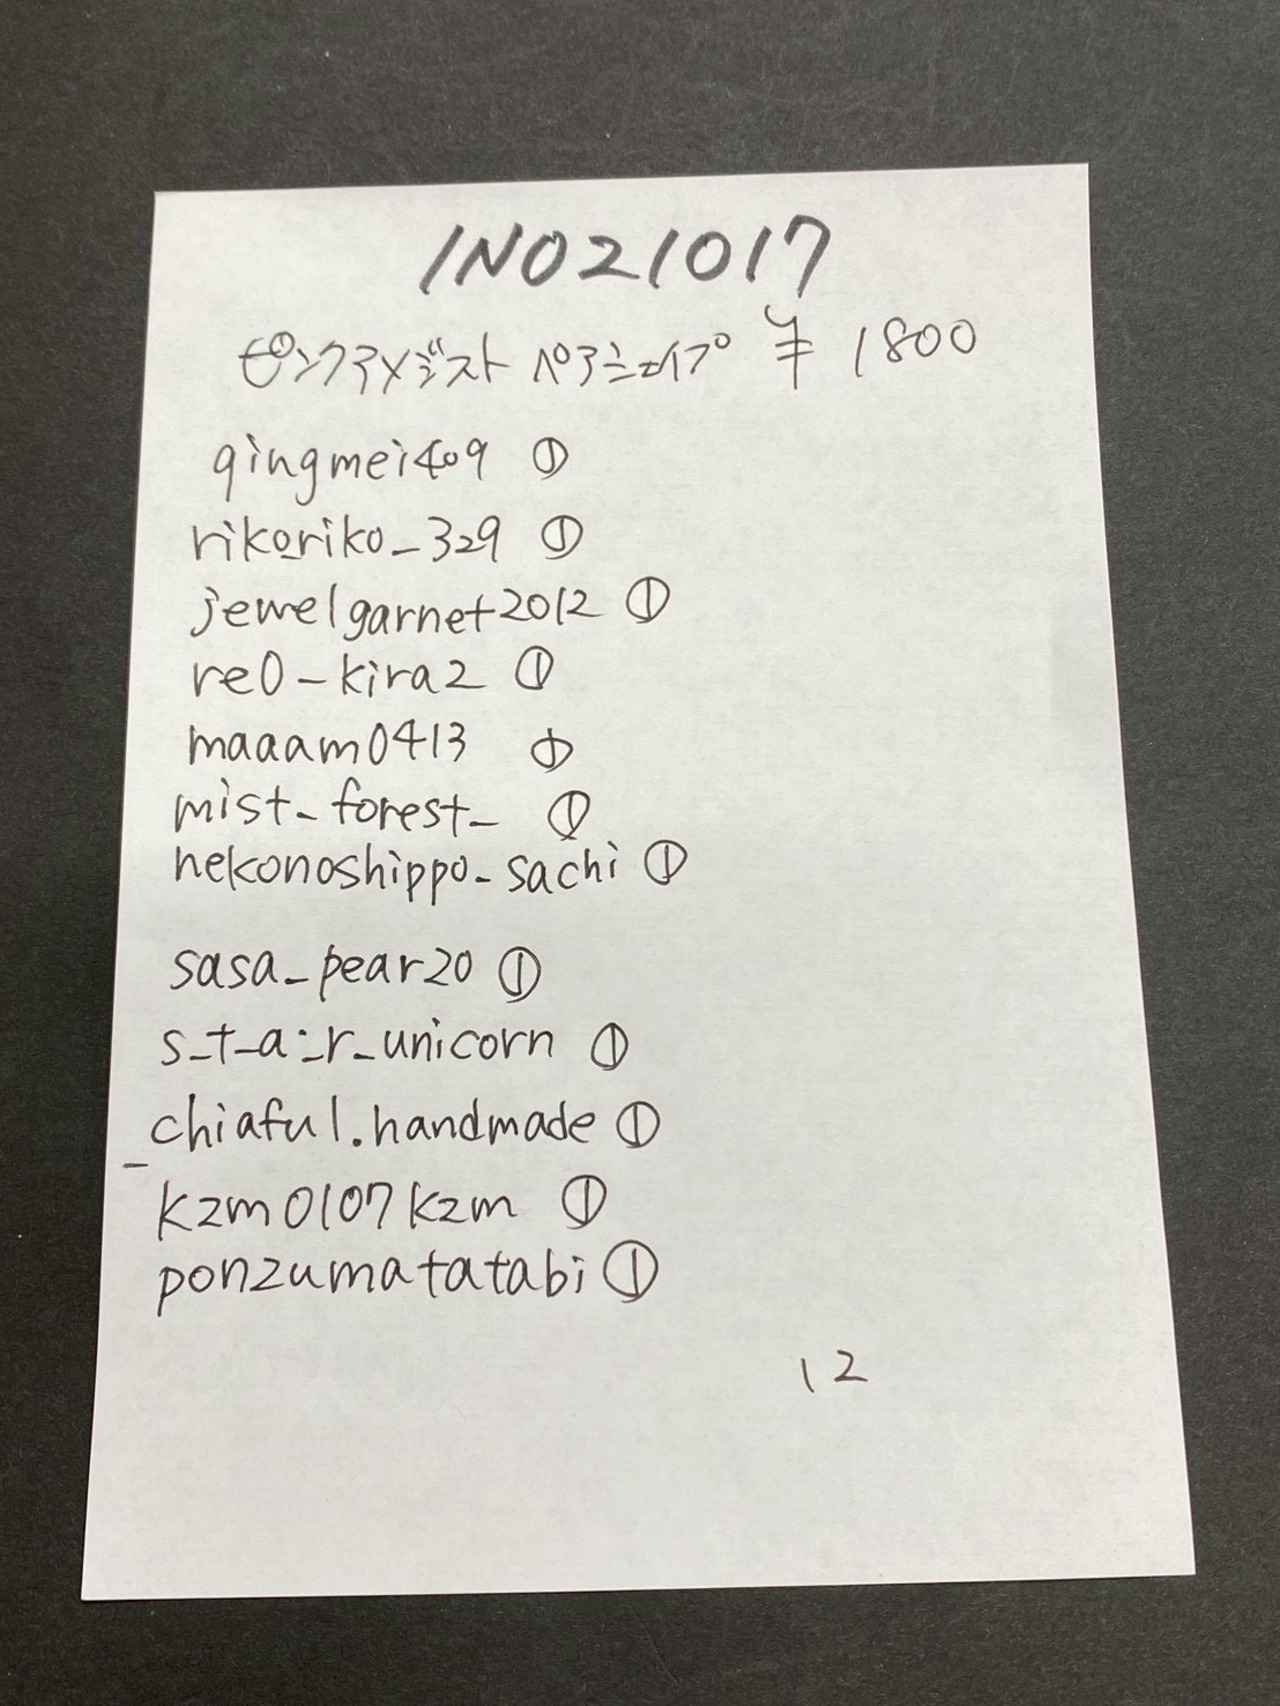 INO21017
ピンクアメジスト ペアシェイプ ¥ 1800
qingmei409 ①
rikoriko_329 ①
jewelgarnet2012 ①
re0-kira2 ①
maaam0413 ①
mist_forest_ ①
nekonoshippo_sachi ①
sasa_pear20 ①
s_t_a_r_unicorn ①
_chiaful.handmade ①
kzm0107kzm ①
ponzumatatabi ①
12